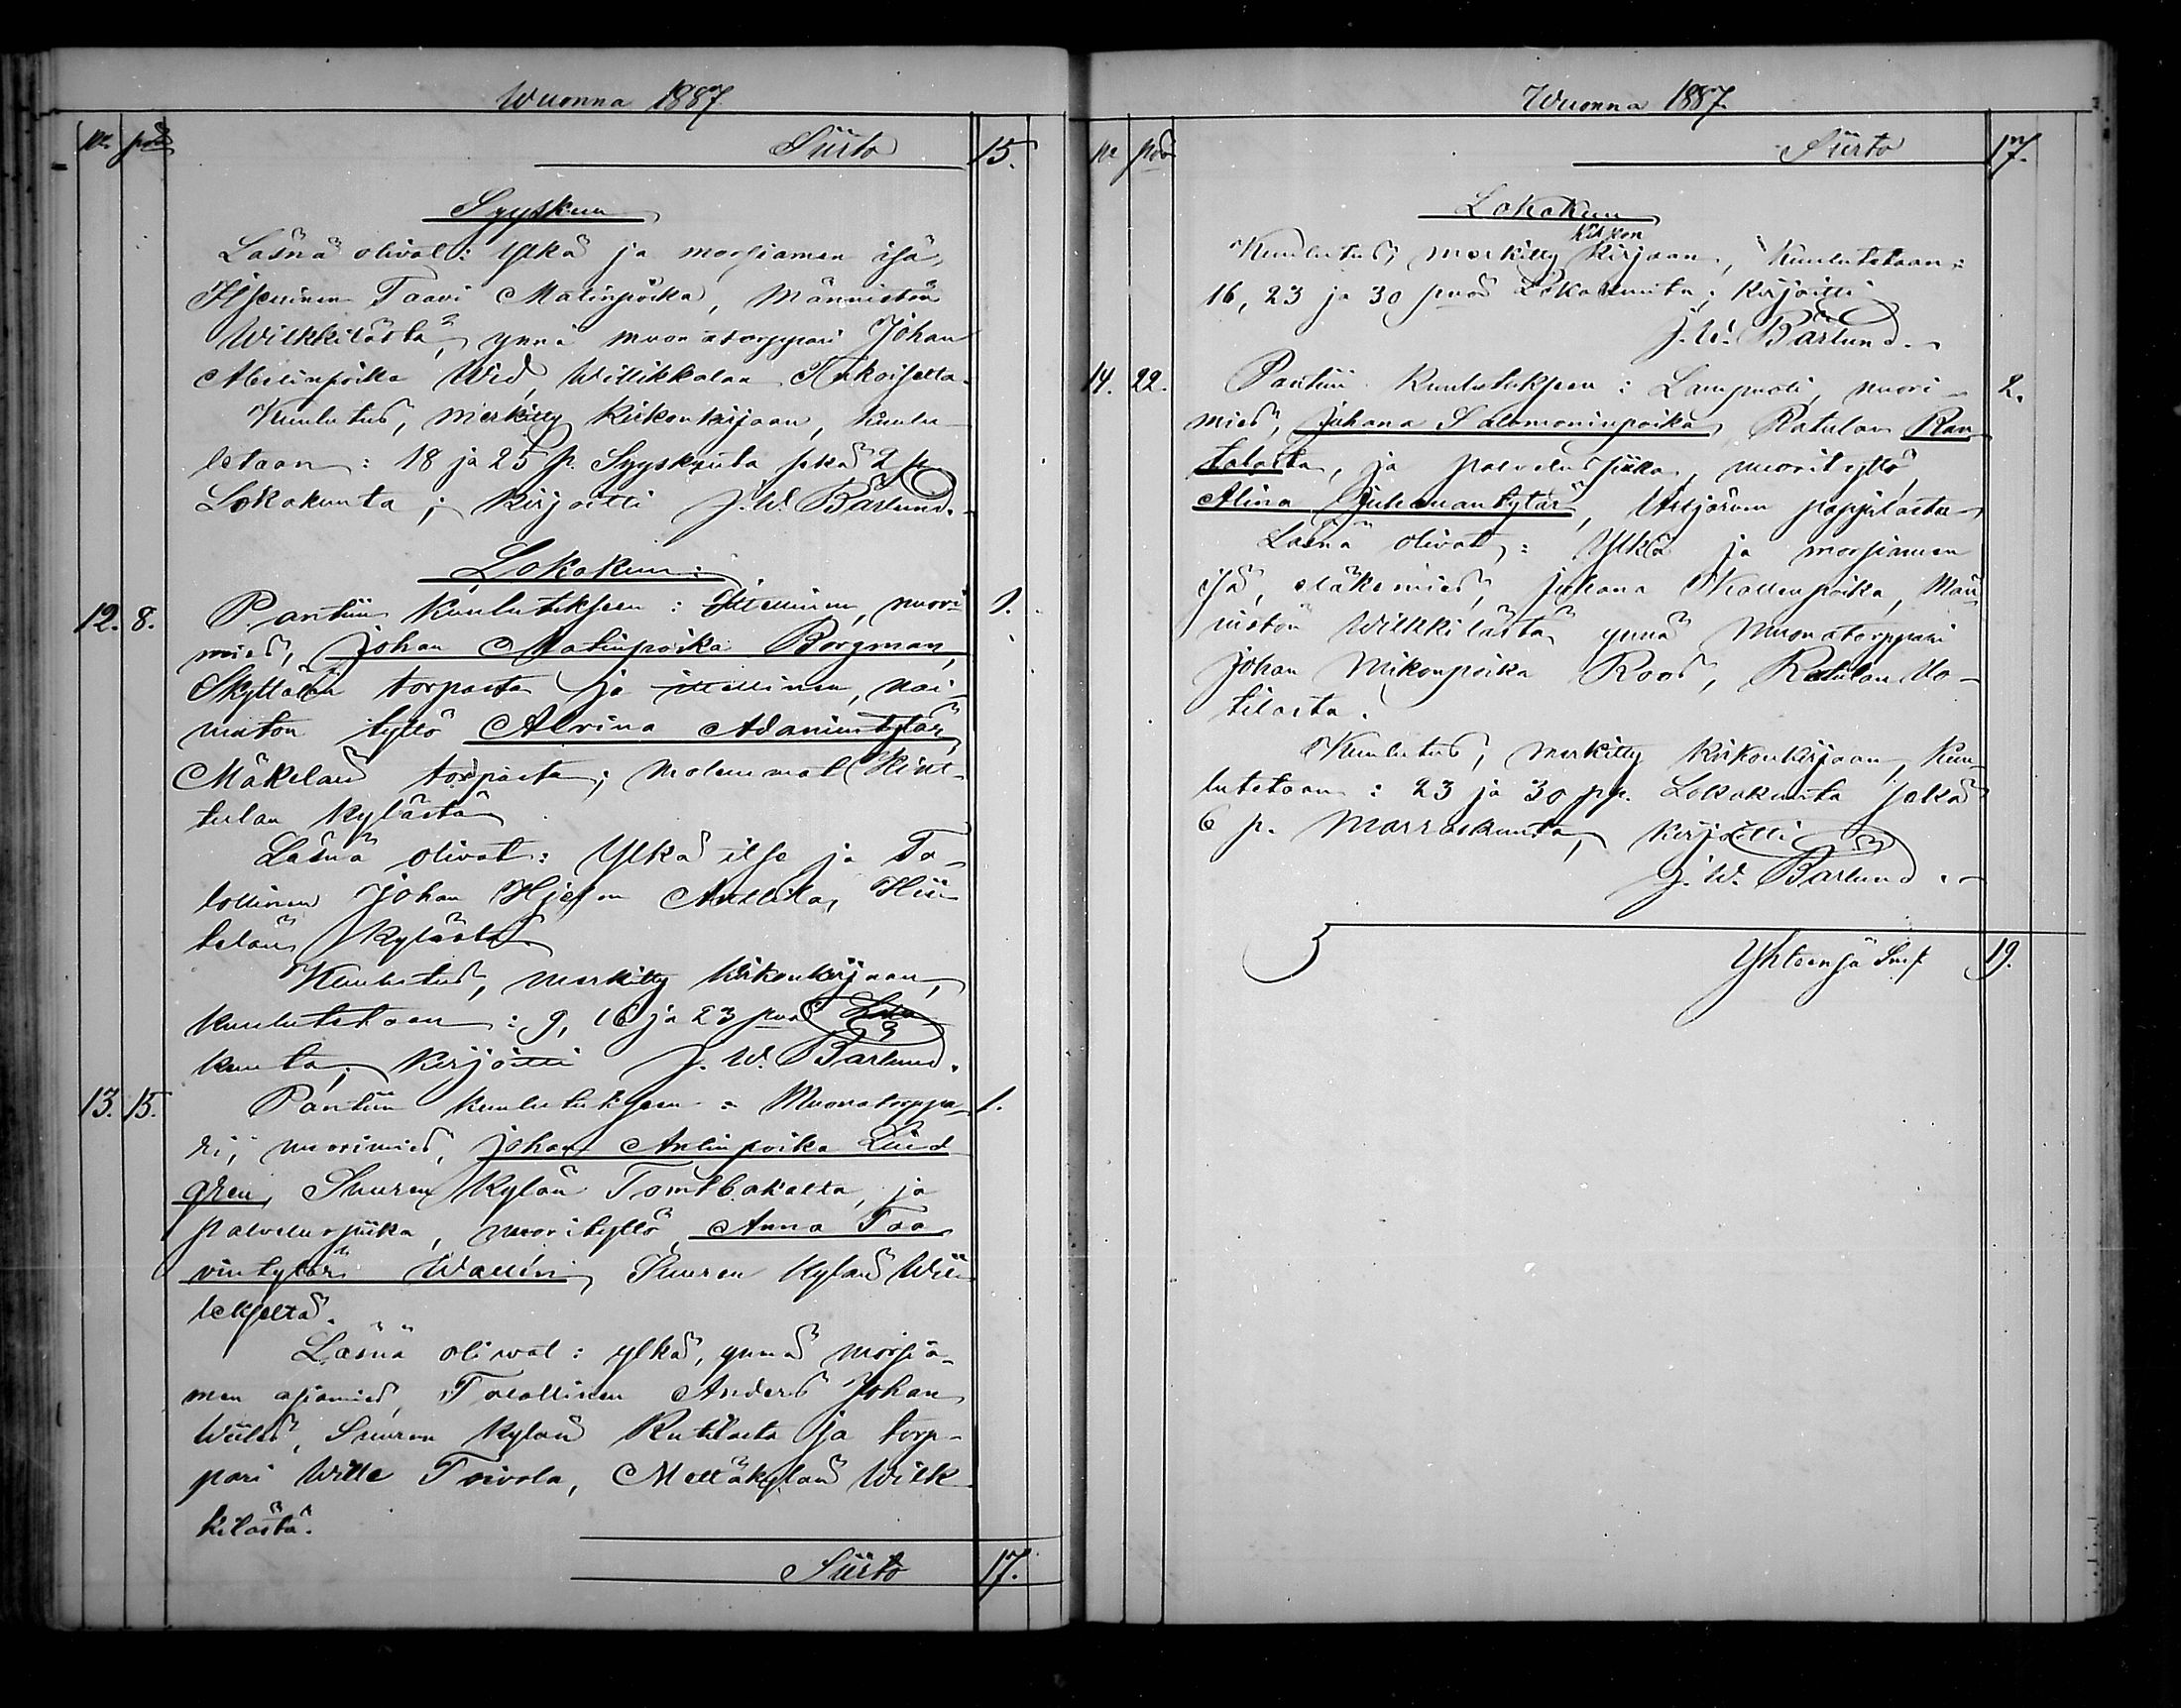 Wuonna 1887.
No. pvä
Siirto 15.
Syyskuu
Läsnä olivat: Ylkä ja morsiamen isä,
Itsellinen Taavi Matinpoika, Männistön
Wilkkilästä, ynnä muonatorppari Johan
Abelinpoika Wid, Willikkalan
Kuulutus, merkitty kirkonkirjaan, kuulu-
letaan: 18 ja 25 p. Syyskuuta sekä 2 p.
Lokakuuta; kirjoitti J. W. Bärlund.
Lokakuu:
12. 8. Pantiin kuulutukseen: Itsellinen, nuori- 1.
mies, Johan Matinpoika Borgman,
Skyttälän torpasta ja itsellinen, nai-
maton tyttö Alvina Adamintytär,
Mäkelän torpasta; molemmat Hiit-
telän kylästä
Läsnä olivat: Ylkä itse ja Ta-
lollinen Johan Hjelm Anttila, Hiit-
telän kylästä
Kuulutus, merkitty kirkonkirjaan,
kuulutetaan: 9, 16 ja 23 pvä Loka
kuuta; kirjoitti J. W. Bärlund.
13. 15. Pantiin kuulutukseen: Muonatorppa- 1.
ri, nuorimies, Johan Antinpoika Lind
gren, Suuren Kylän Tombakalta, ja
palveluspiika, nuorityttö, Anna Taa
vintytär Wallén, Suuren Kylän Wil
lekselta.
Läsnä oliwat: ylkä, ynnä morsia-
men asiamies, Talollinen Anders Johan
Wiils, Suuren kylän Rutilasta ja torp-
pari Wille Toivola, Mettäkylän Wilk
kilästä.
Siirto 17.
Wuonna 1887.
No pvä
Siirto 17.
Lokakuu
kirkon
Kuulutus, merkitty kirjaan, kuulutetaan:
16, 23 ja 30 pvä Lokakuuta; kirjoitti
J. W. Bärlund.
14. 22. Pantiin kuulutukseen: Lampuoti, nuori- 2.
mies, Juhana Salomoninpoika, Ratulan Ran
talasta, ja palveluspiika, nuorityttö,
Alina Juhanantytär, Artjärven pappilasta
Läsnä olivat: Ylkä ja morsiamen
isä, mäkimies, Juhana Kallenpoika, Män
nistön Wilkkilästä ynnä Muonatorppari
Johan Mikonpoika Roos, Ratulan Uo-
tilasta.
Kuulutus, merkitty kirkonkirjaan, kuu-
lutetaan: 23 ja 30 pp. Lokakuuta sekä
6 p. Marraskuuta, kirjoitti
J. W. Bärlund.
Yhteensä Smf 19.